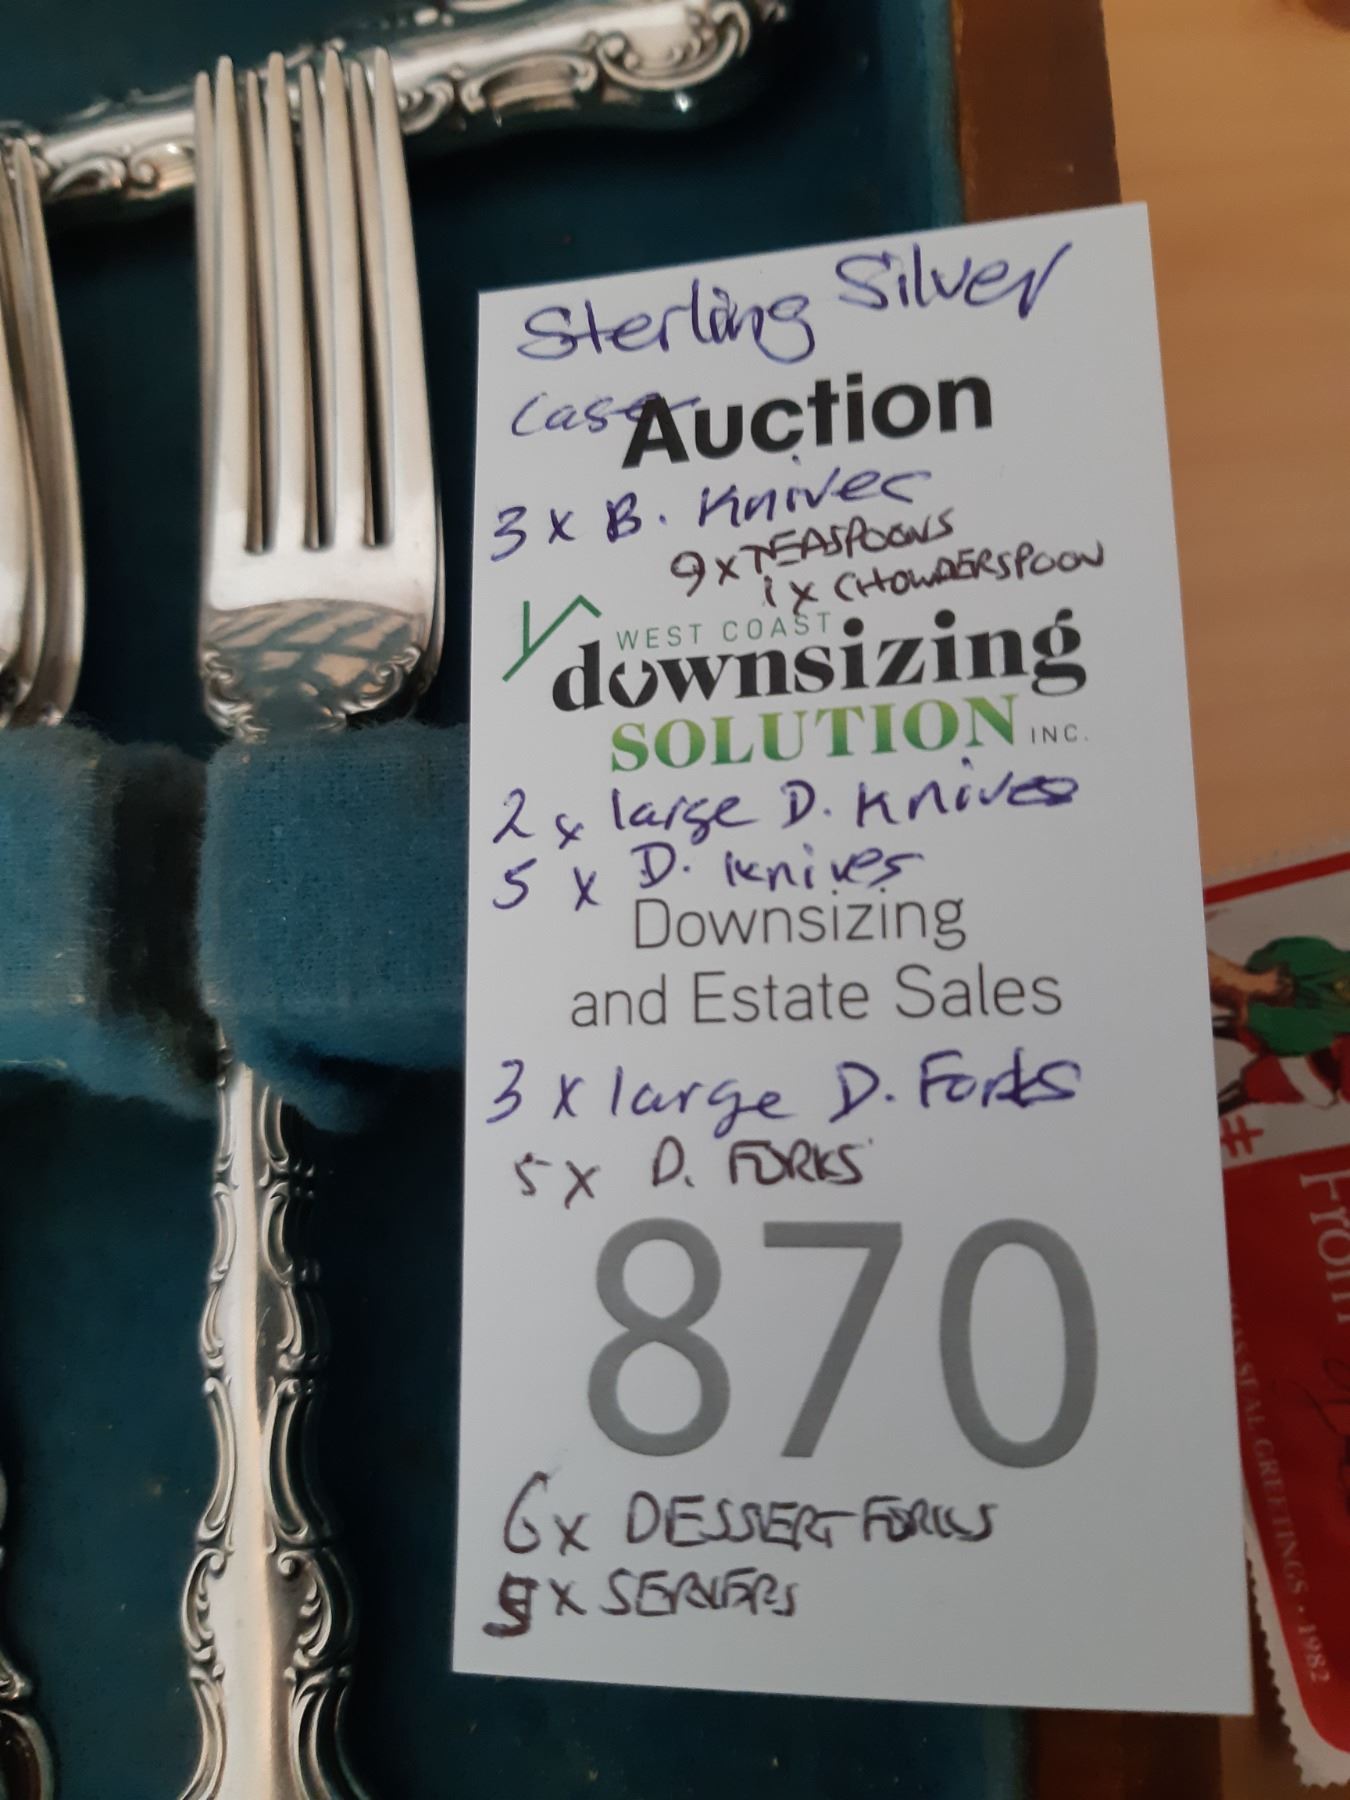 Sterling Silver
Case
Auction
3 x B. Knives
9 x TEASPOONS
1 x CHOWDERSPOON
WEST COAST
downsizing
SOLUTION INC.
2 x large D. Knives
5 x D. knives
Downsizing
and Estate Sales
3 x large D. Forks
5 x D. FORKS
870
6 x DESSERT FORKS
x SERVERS
From
SEAL GREETINGS · 1982